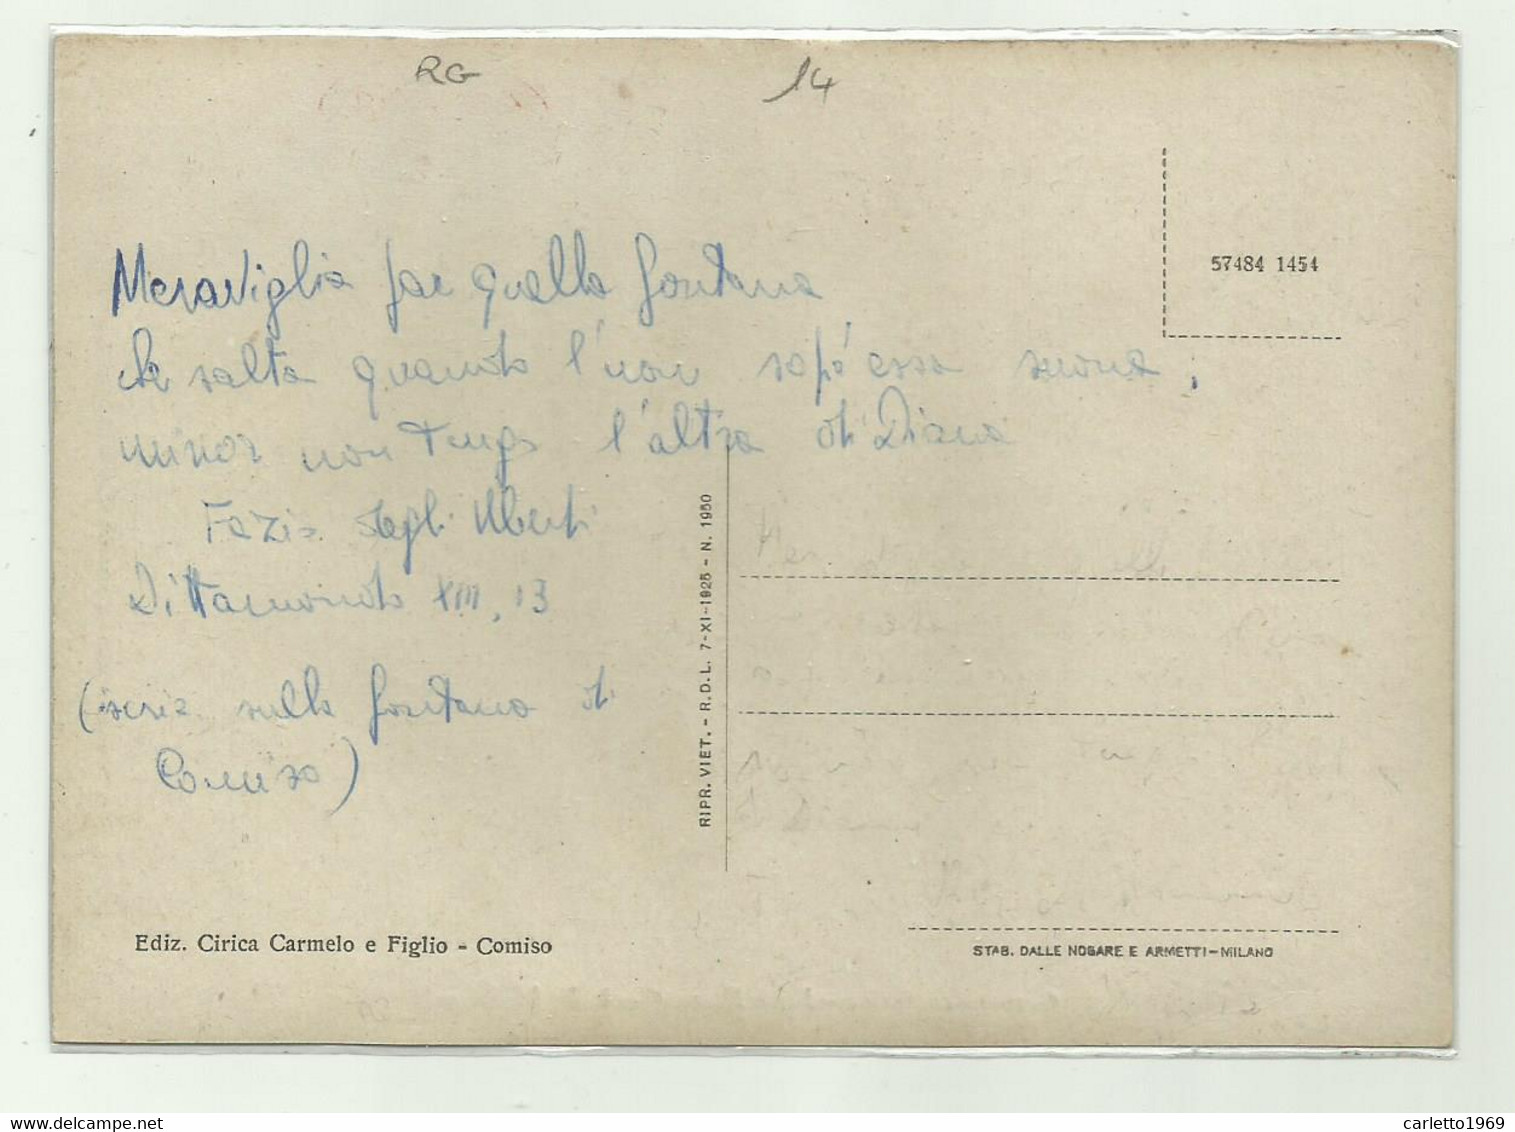 RG
14
57484 1454
Meraviglia par quella fontana
che salta quando l'uom sopr'essa suona,
minor non tengo l'altra di Diana
Fazio degli Uberti
Dittamondo XIII, 13
(scritta sulla fontana di
Comiso)
RIPR. VIET. - R.D.L. 7-XI-1925 - N. 1950
Ediz. Cirica Carmelo e Figlio - Comiso
STAB. DALLE NOGARE E ARMETTI-MILANO
delcampe.net
carletto1969